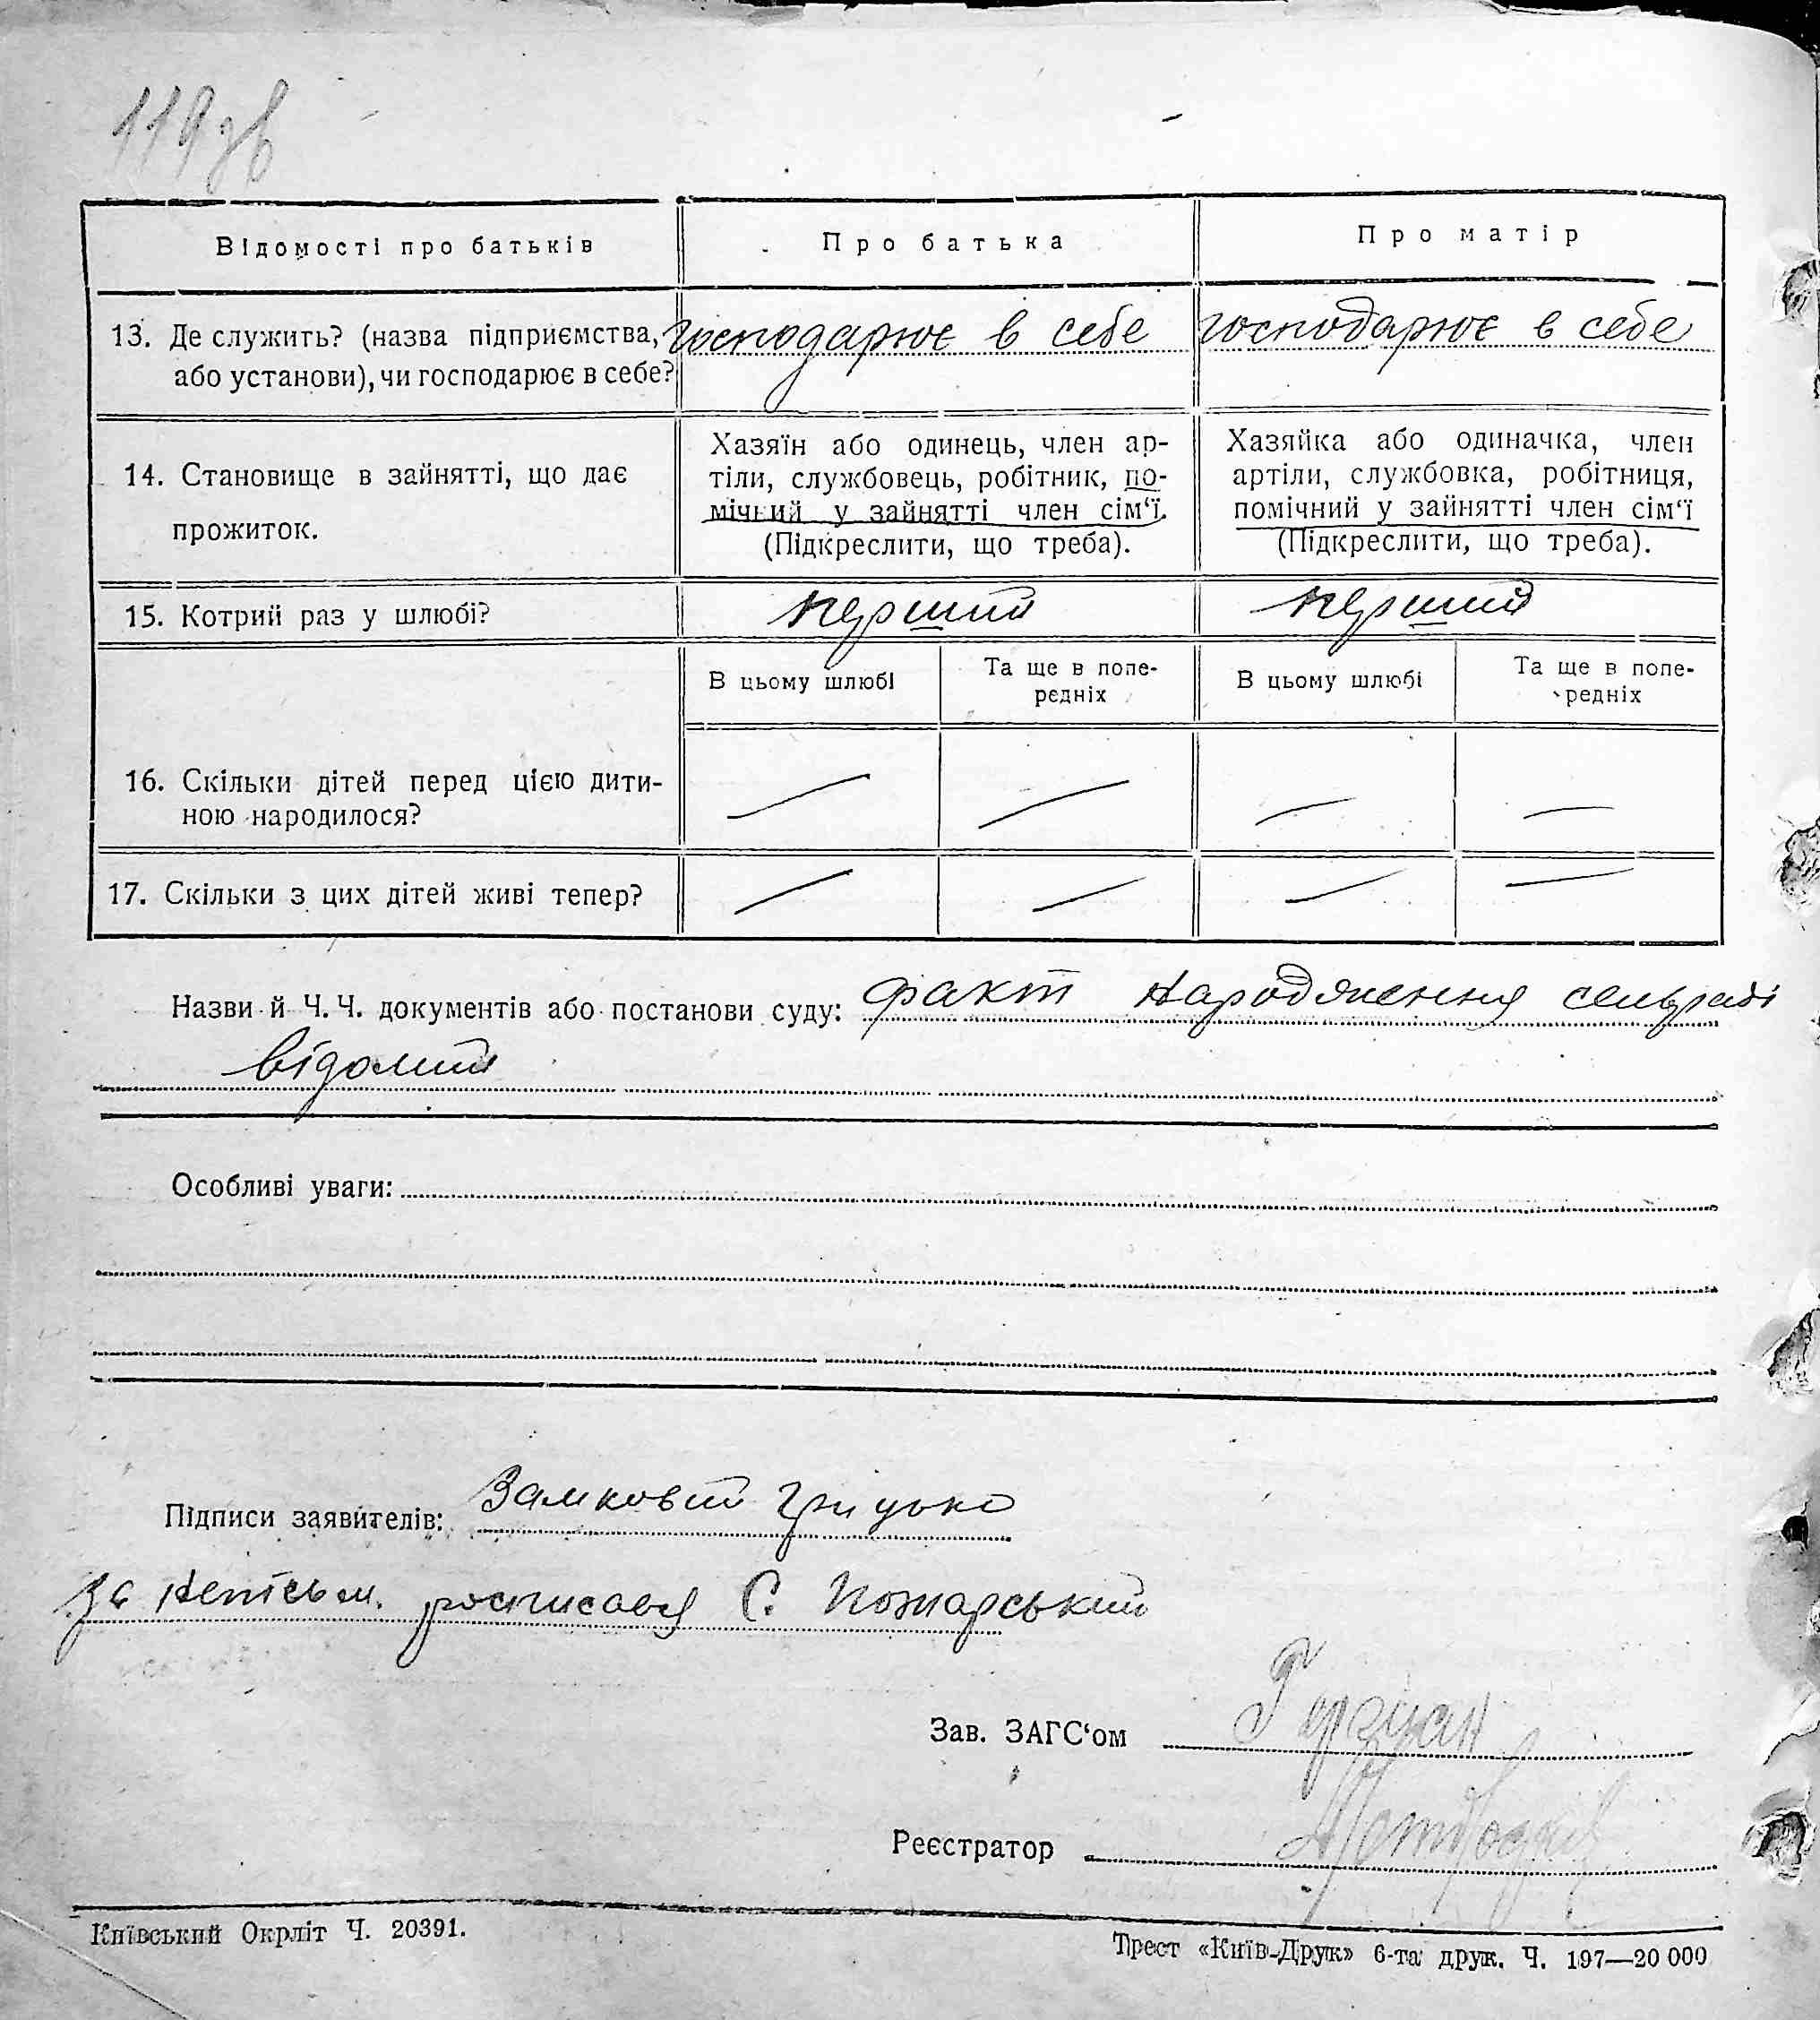 119 зв
Відомості про батьків
Про батька
Про матір
13. Де служить? (назва підприємства,
або установи), чи господарює в себе?
господарює в себе
господарює в себе
14. Становище в зайнятті, що дає
прожиток.
Хазяїн або одинець, член ар-
тіли, службовець, робітник, по-
мічний у зайнятті член сім‘ї.
(Підкреслити, що треба).
Хазяйка або одиначка, член
артіли, службовка, робітниця,
помічний у зайнятті член сім‘ї
(Підкреслити, що треба).
15. Котрий раз у шлюбі?
перший
перший
В цьому шлюбі
Та ще в попе-
редніх
В цьому шлюбі
Та ще в попе-
редніх
16. Скільки дітей перед цією дити-
ною народилося?
17. Скільки з цих дітей живі тепер?
Назви й Ч. Ч. документів або постанови суду: факт народження сельраді
відомий
Особливі уваги:
Підписи заявителів: Замковий Грицько
За неписьм. росписався С. Пожарський
Зав. ЗАГС‘ом
Реєстратор
Київський Окрліт Ч. 20391.
Трест «Київ-Друк» 6-та друк. Ч. 197—20 000